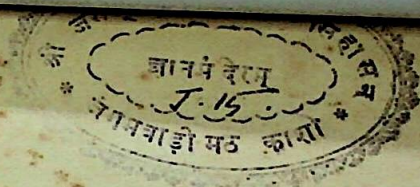 श्री
सिंहासन
ज्ञानमंदिरम्
J. 15.
* जंगमवाड़ी मठ काशी *